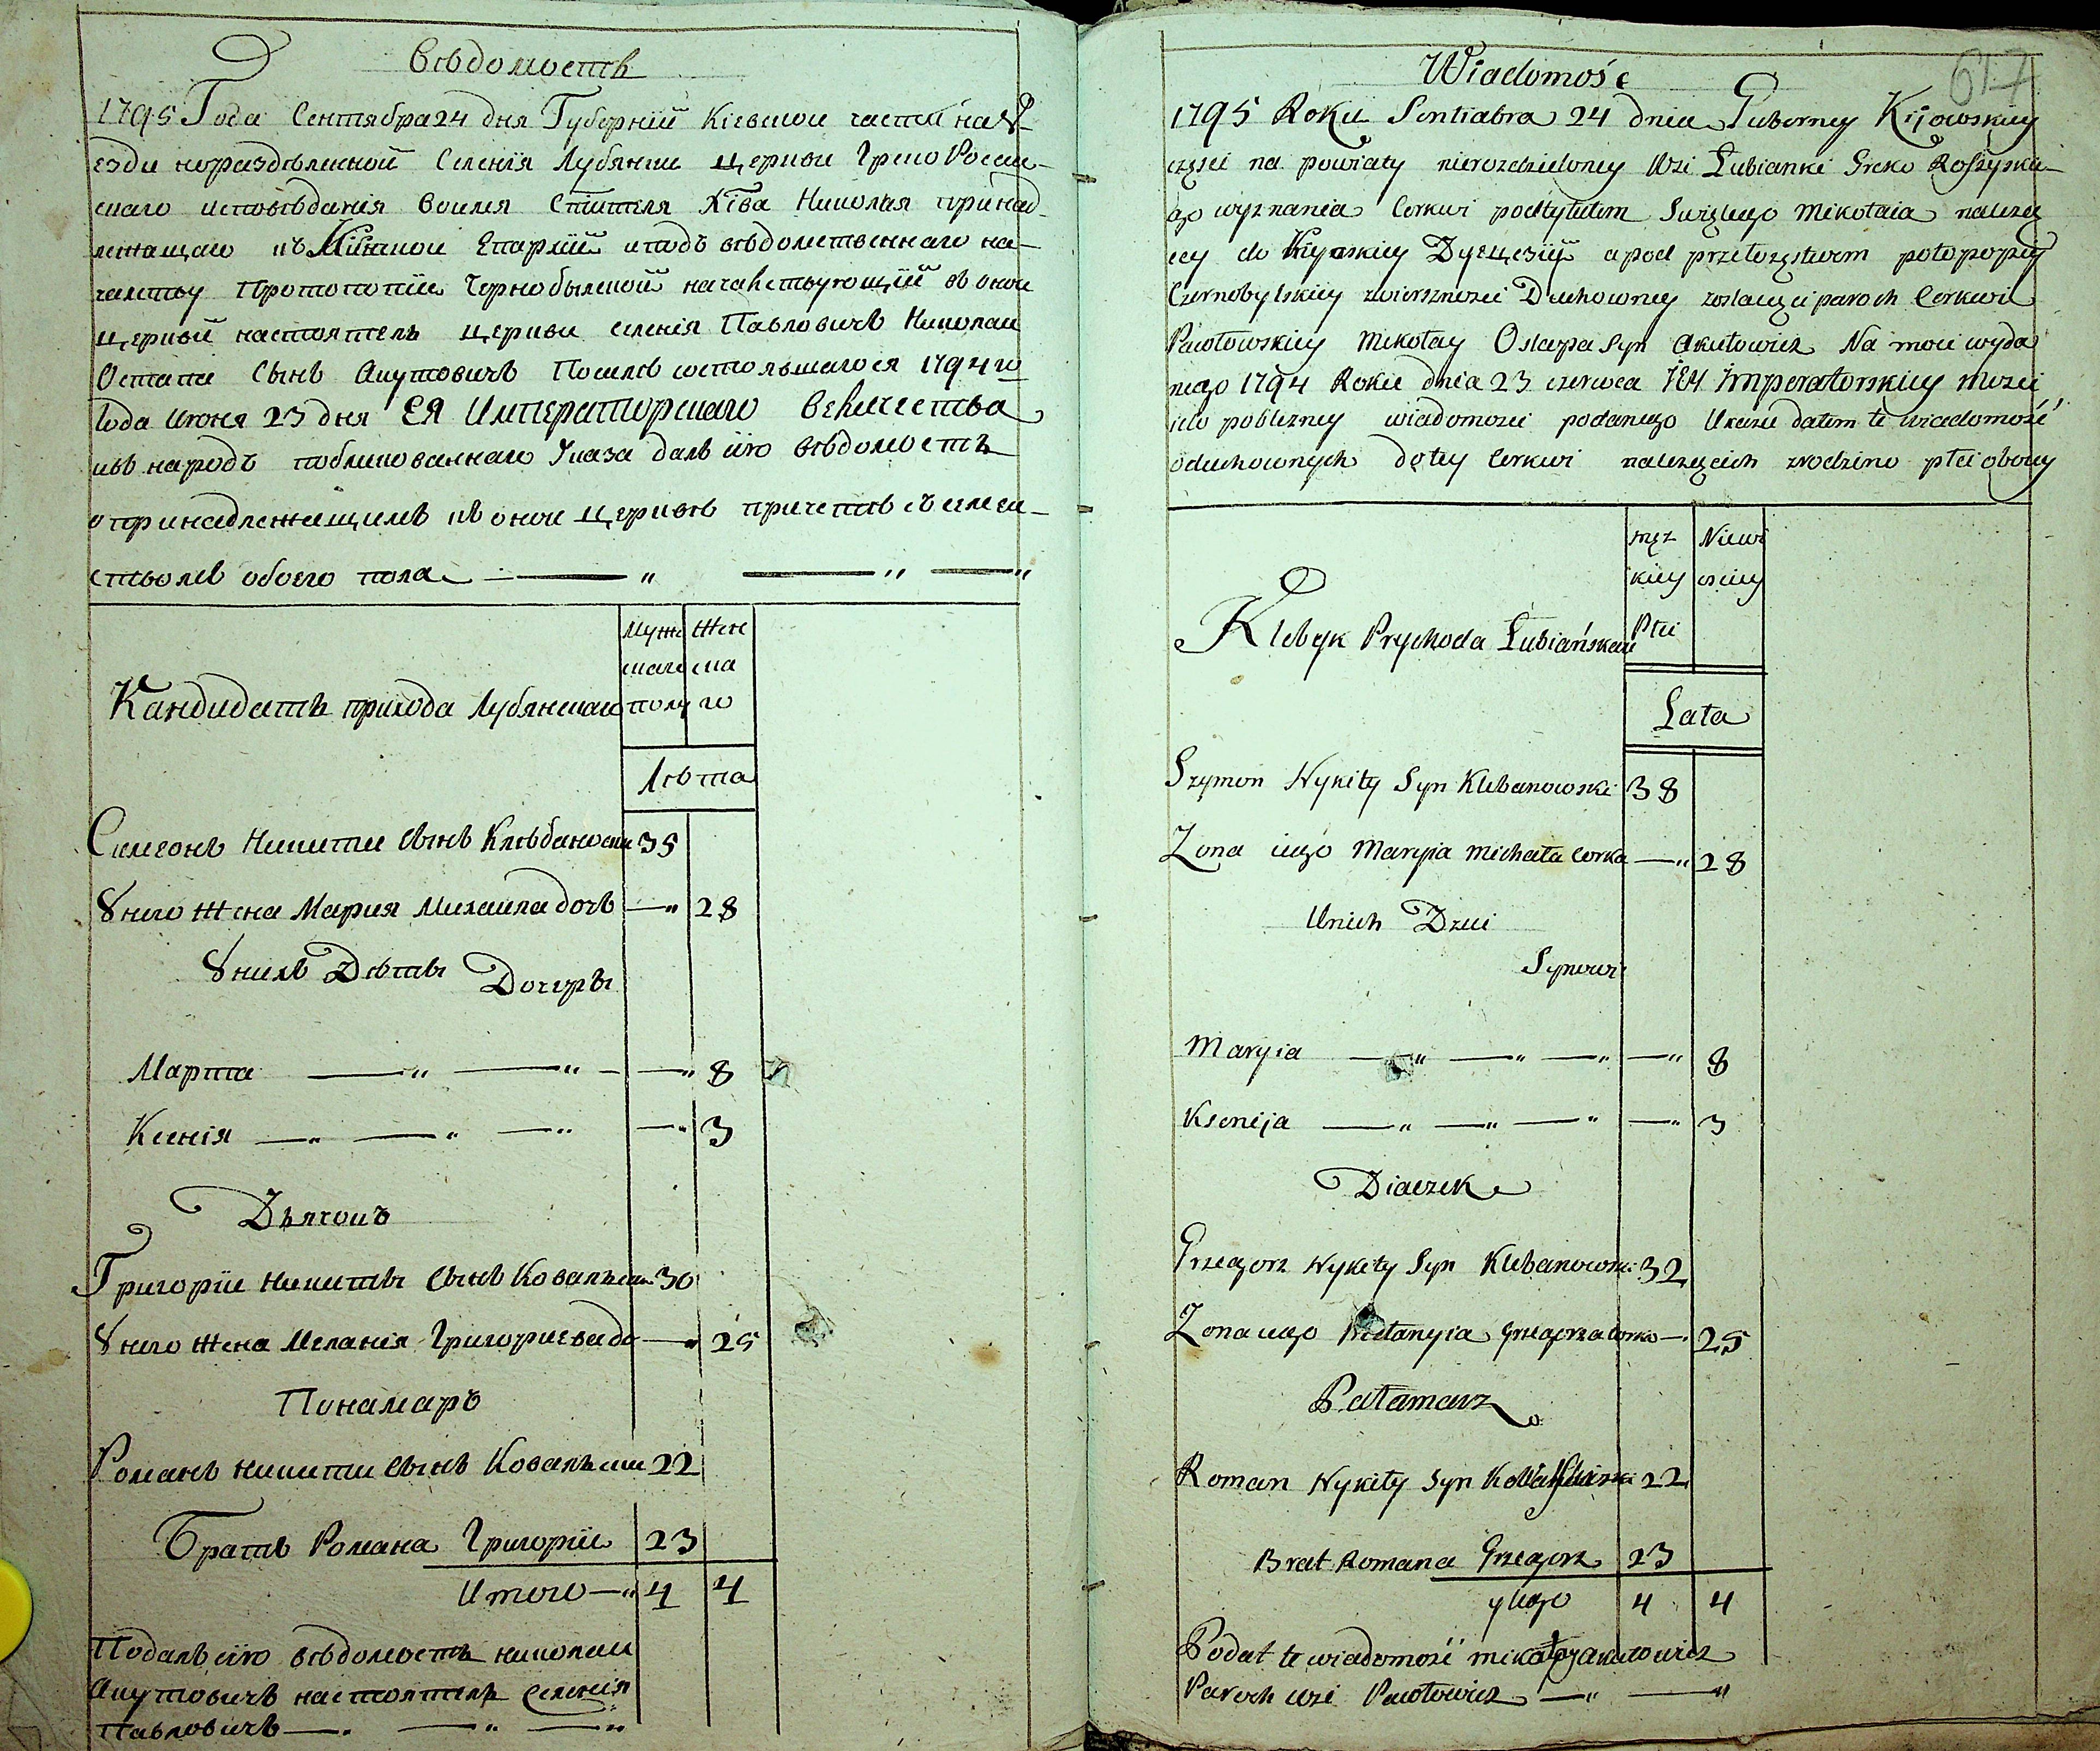 Вѣдомость
1795 Года Сентября 24 дня Губерніи Кіевской части на У-
езди нераздѣленной Селенія Лубянки церкви Греко Россий-
скаго исповѣданія воимя Стителя Хтва Николая принад-
лежащаго къ Минской Епархіи и подъ вѣдомственнаго на-
чалству Протопопіи Чернобылской началствующій въ оной
церкви настоятель церкви селенія Павловичъ Николай
Остапа Сынъ Акутовичъ Посилѣ состоявшагося 1794 го
Года Июня 23 дня ЕЯ Императорскаго Величества
и въ народъ публикованнаго Указа далъ сию вѣдомость
о принадлежащимъ къ оной церквѣ причетѣ съ семей-
ствомъ обоего пола — " — " — "
Мужс Жен
скаго ска
полу го
Кандидатъ прихода Лубянскаго
Лѣта
Симеонъ Никити Сынъ Клѣбановски 35
Унего Жена Мария Михаила дочь — " 28
Унихъ Дѣты Дочеры
Марта — " — " — — " 8
Ксенія — " — " — " — " 3
Дьячокъ
Григорій Никиты Сынъ Ковальски 30
Унего Жена Меланія Григориева до — " 25
Понамаръ
Романъ Никити Сынъ Ковальски 22
Братъ Романа Григорій 23
Итого — " 4 4
Подалъ сию вѣдомость николай
Акутовичъ настоятель Селенія
Павловичъ — " — " — "
617
Wiadomość
1795 Roku Sentiabra 24 dnia Guberney Kijowskiey
częsci na powiaty nierozdzieloney Wsi Łubianki Greko Roszyski-
ego wyznania Cerkwi podtytulem Swiętego Mikołaia należą
cey do Dyецезіи a pod przełożęstwem potopopiy
Czernobylskiey zwierznosci Duchowney zostaiąci paroch Cerkwi
Pawłowskiey Mikołay Ostapa Syn Akutowicz Na moci wyda
nego 1794 Roku dnia 23 czerwca JEY Imperatorskiey mosci
ido publizney wiadomosci podanego Ukazu dałem te wiadomość
oduchownych dotey Cerkwi należących zrodzino płci oboey
męz Niewi
kiey esciey
Płci
Klebyk Prychoda Łubiańskai
Lata
Szymon Nykity Syn Klebanowski 38
Zona iego Maryia Michała Corka — " 28
Unich Dzeci
Synowi
Maryia — " — " — " — " 8
Ksenija — " — " — " — " 3
Diaczek
Grzegorz Nykity Syn Klebanowski 32
Zona iego Mełanyia Grzegorza Corka — " 25
Pałamarz
Roman Nykity Syn 22
Brat Romana Grzegorz 23
ytego 4 4
Podał te wiadomość mikołay akutowicz
Paroch wsi Pawłowicz — " — "